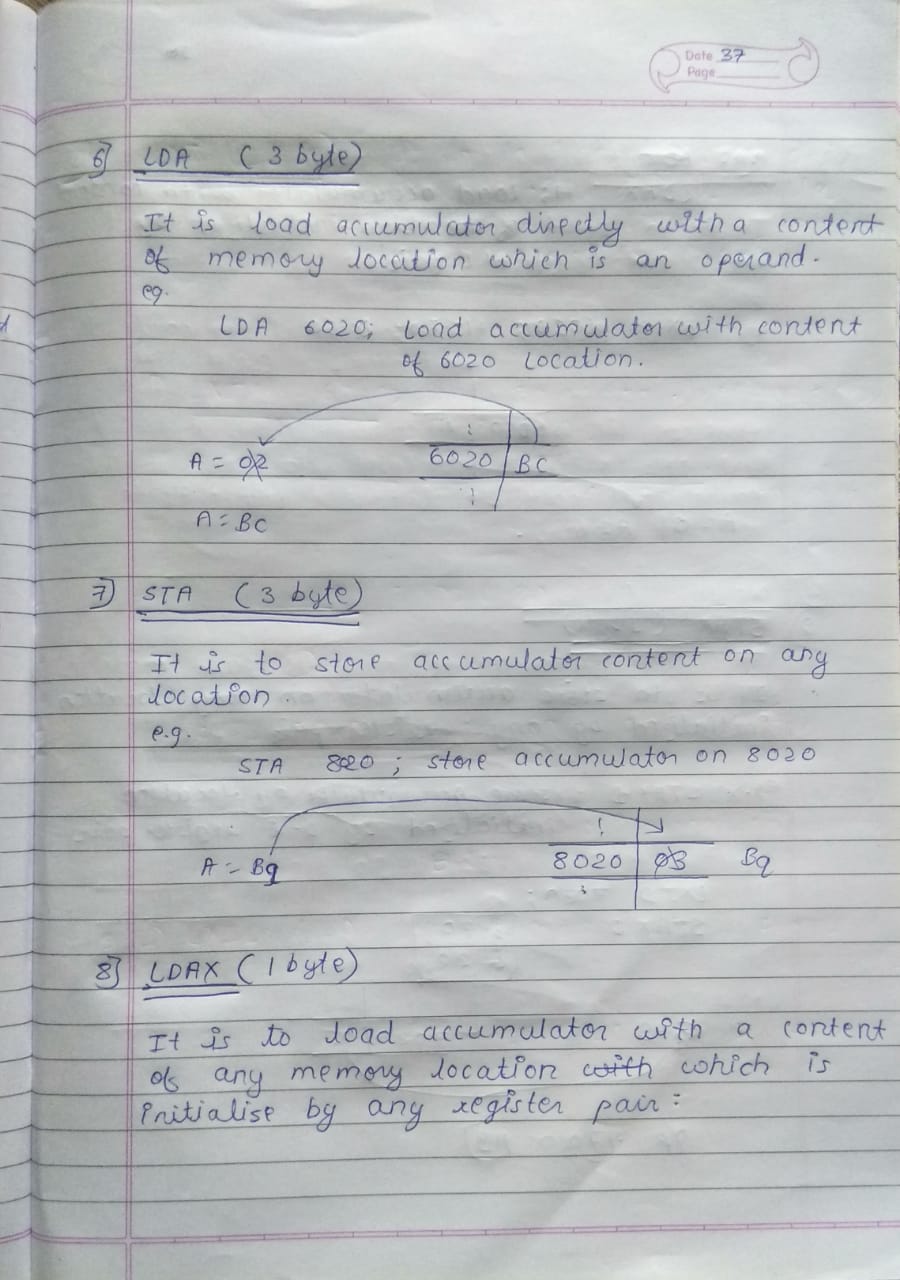 Date 37
Page
6] LDA (3 byte)
It is load accumulator directly with a content
of memory location which is an operand.
eg.
LDA 6020; Load accumulator with content
of 6020 location.
A = 02
6020 BC
A = BC
7) STA (3 byte)
It is to store accumulator content on any
location.
e.g.
STA 8020 ; store accumulator on 8020
A = B9
8020 03 B9
8] LDAX (1 byte)
It is to load accumulator with a content
of any memory location with which is
initialise by any register pair: